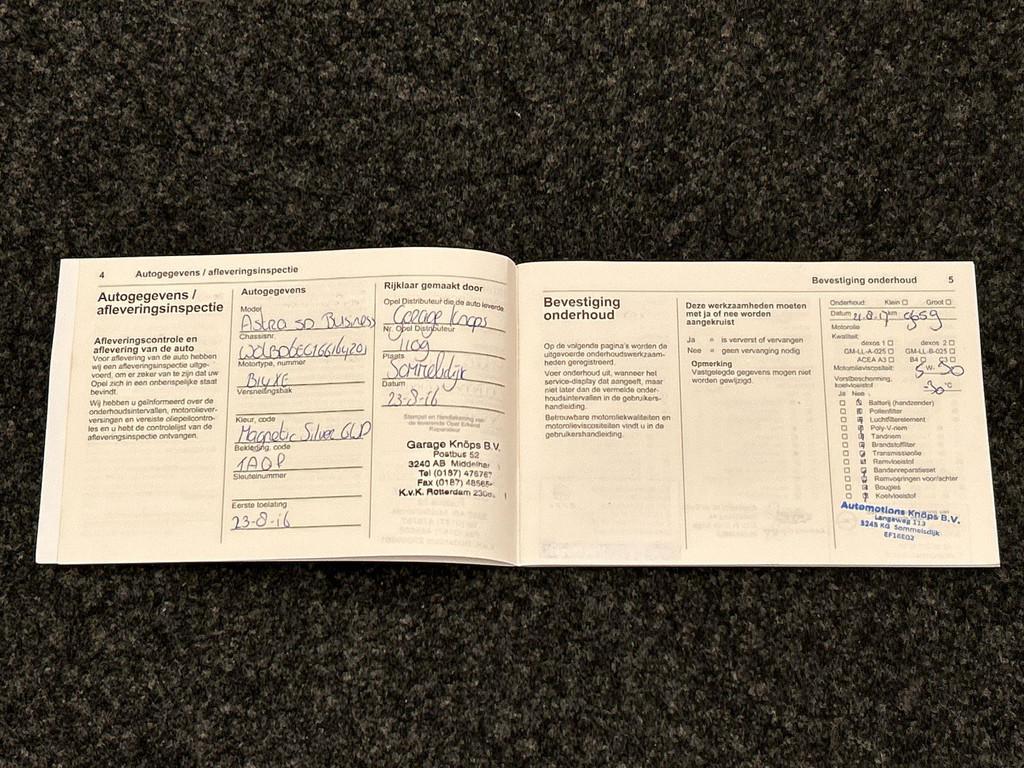 4 Autogegevens / afleveringsinspectie
Autogegevens /
afleveringsinspectie
Afleveringscontrole en
aflevering van de auto
Voor aflevering van de auto hebben
wij een afleveringsinspectie uitge-
voerd, om er zeker van te zijn dat uw
Opel zich in een onberispelijke staat
bevindt.
Wij hebben u geïnformeerd over de
onderhoudsintervallen, motoroliever-
versingen en vereiste oliepeilcontro-
les en u hebt de controlelijst van de
afleveringsinspectie ontvangen.
Autogegevens
Model
Astra 5D Business
Chassisnr.
Motortype, nummer
B14XE
Versnellingsbak
Kleur, code
Magnetic Silver
Bekleding, code
TAOP
Sleutelnummer
Eerste toelating
23-8-16
Rijklaar gemaakt door
Opel Distributeur die de auto leverde
Garage Knöps
Nr. Opel Distributeur
1109
Plaats
Sommelsdijk
Datum
23-8-16
Stempel en Handtekening van
de leverende Opel Erkend
Reparateur
Garage Knöps B.V.
Postbus 52
3240 AB Middelhar
Tel (0187) 476767
Fax (0187) 48565
K.v.K. Rotterdam 230
Bevestiging onderhoud 5
Bevestiging
onderhoud
Op de volgende pagina's worden de
uitgevoerde onderhoudswerkzaam-
heden geregistreerd.
Voer onderhoud uit, wanneer het
service-display dat aangeeft, maar
niet later dan de vermelde onder-
houdsintervallen in de gebruikers-
handleiding.
Betrouwbare motoroliekwaliteiten en
motorolieviscositeiten vindt u in de
gebruikershandleiding.
Deze werkzaamheden moeten
met ja of nee worden
aangekruist
Ja = is ververst of vervangen
Nee = geen vervanging nodig
Opmerking
Vastgelegde gegevens mogen niet
worden gewijzigd.
Onderhoud: Klein Groot
Datum 21.8.17 km 9659
Motorolie
Kwaliteit:
dexos 1 dexos 2
GM-LL-A-025 GM-LL-B-025
ACEA A3 B4 C3
Motorolieviscositeit: 5 W- 30
Vorstbescherming,
koelvloeistof -30 °C
Ja Nee
Batterij (handzender)
Pollenfilter
Luchtfilterelement
Poly-V-riem
Tandriem
Brandstoffilter
Transmissieolie
Remvloeistof
Bandenreparatieset
Remvoeringen voor/achter
Bougies
Koelvloeistof
Automotions Knöps B.V.
Langeweg 113
3245 KG Sommelsdijk
EF16E02